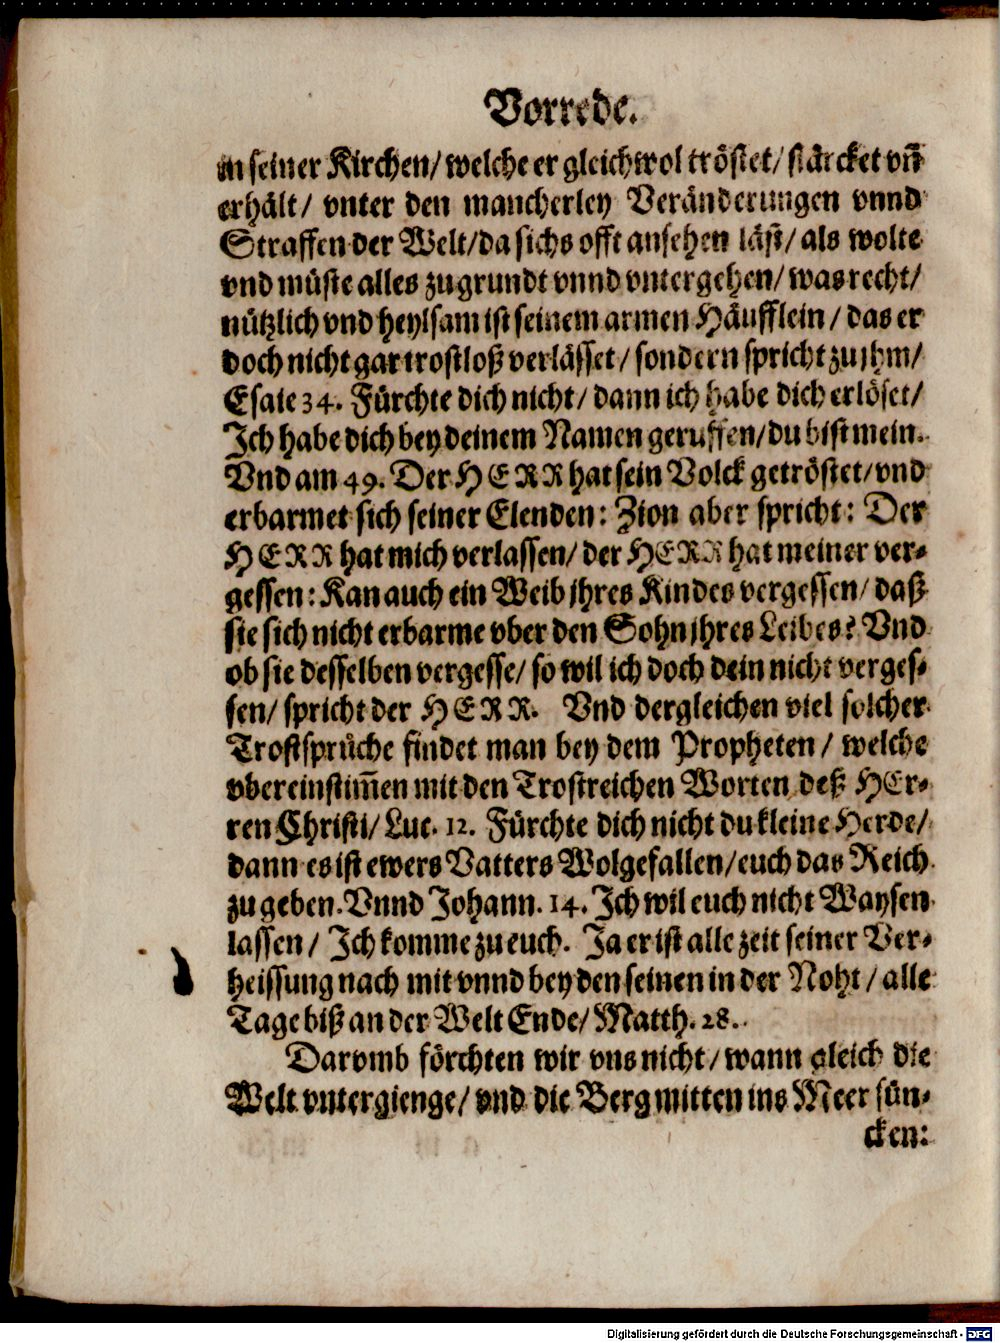 Vorrede.
in seiner Kirchen/ welche er gleichwol tröstet/ stärcket vn̄
erhält/ vnter den mancherley Veränderungen vnnd
Straffen der Welt/ da sichs offt ansehen läst/ als wolte
vnd müste alles zugrundt vnnd vntergehen/ was recht/
nützlich vnd heylsam ist seinem armen Häufflein/ das er
doch nicht gar trostloß verlässet/ sondern spricht zu jhm/
Esaie 34. Fürchte dich nicht/ dann ich habe dich erlöset/
Ich habe dich bey deinem Namen geruffen/ du bist mein.
Vnd am 49. Der HERR hat sein Volck getröstet/ vnd
erbarmet sich seiner Elenden: Zion aber spricht: Der
HERR hat mich verlassen/ der HERR hat meiner ver-
gessen: Kan auch ein Weib jhres Kindes vergessen/ daß
sie sich nicht erbarme vber den Sohn jhres Leibes? Vnd
ob sie desselben vergesse/ so wil ich doch dein nicht verges-
sen/ spricht der HERR. Vnd dergleichen viel solcher
Trostsprüche findet man bey dem Propheten/ welche
vbereinstim̄en mit den Trostreichen Worten deß HEr-
ren Christi/ Luc. 12. Fürchte dich nicht du kleine Herde/
dann es ist ewers Vatters Wolgefallen/ euch das Reich
zu geben. Vnnd Johann. 14. Ich wil euch nicht Waysen
lassen/ Ich komme zu euch. Ja er ist alle zeit seiner Ver-
heissung nach mit vnnd bey den seinen in der Noht/ alle
Tage biß an der Welt Ende/ Matth. 28.
Darvmb förchten wir vns nicht/ wann gleich die
Welt vntergienge/ vnd die Berg mitten ins Meer sün-
cken:
Digitalisierung gefördert durch die Deutsche Forschungsgemeinschaft - DFG